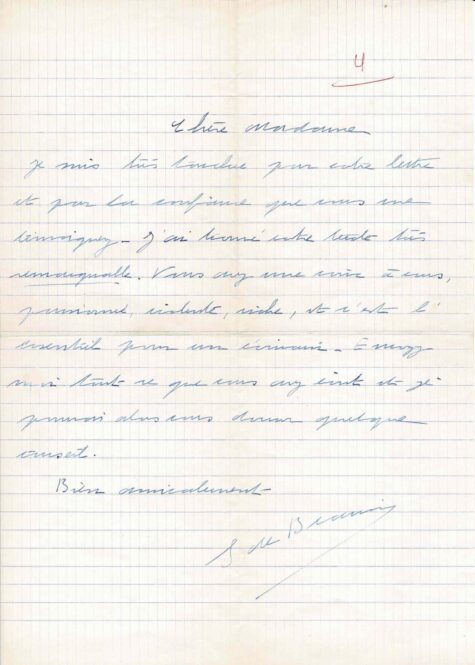 4
Chère Madame
Je suis très touchée par votre lettre
et par la confiance que vous me
témoignez _ J'ai trouvé votre texte très
remarquable. Vous avez une voix à vous,
passionnée, violente, riche, et c'est l'
essentiel pour un écrivain _ Envoyez
moi tout ce que vous avez écrit et je
pourrai alors vous donner quelque
conseil.
Bien amicalement
S de Beauvoir